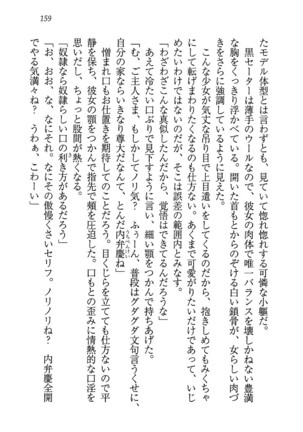 159
たモデル体型とは言えないが、見て惚れ惚れする可憐な小軀だ。
黒セーターは薄手のウールなので、彼女の肉体で唯一バランスを壊しかねない豊満
な胸をくっきり浮かべている。開いた首もとからのぞける白い鎖骨が、女らしい肉づ
きをさらに強調しているように見えた。
こんな少女が気丈な釣り目で上目遣いをしてくるのだから、抱きしめてもみくちゃ
にして転げまわりたくなるのも仕方ない。あくまで可愛がりたいだけであって、いじ
めたいわけではないのだが、そこは誤差の範囲内とみなす。
「わざわざこんな真似したんだから、覚悟はできてるんだろうな」
あえて冷たい口ぶりで見下すように言い、細い顎をつかんで持ちあげた。
「む、ご主人さま、もしかしてノリ気？　ふぅーん、普段はグダグダ文句言うくせに、
自分の家ならいきなり尊大だなんて、とんだ内弁慶ね」
憎まれ口もお仕置きを期待してのことだろう。目くじらを立てても仕方ないので平
静を保ち、彼女の顎をつかんで指先で頬を圧迫した。口もとの歪みに情熱的な口淫を
思いだし、ちょっと股間が熱くなる。
「奴隷なら奴隷らしい口の利き方があるだろう」
「お、おお、な、なにそれ、なにその傲慢くさいセリフ。ノリノリね？　内弁慶全開
でやる気満々ね？　うわぁ、こわーい」